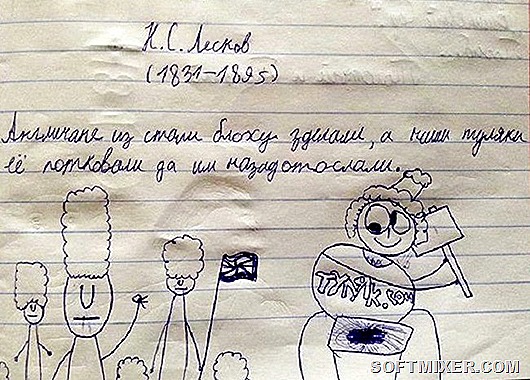 Н. С. Лесков
(1831-1895)
Англичане из стали блоху зделали, а наши туляки
её потковали да им назадотослали.
туляк.com
SOFTMIXER.COM